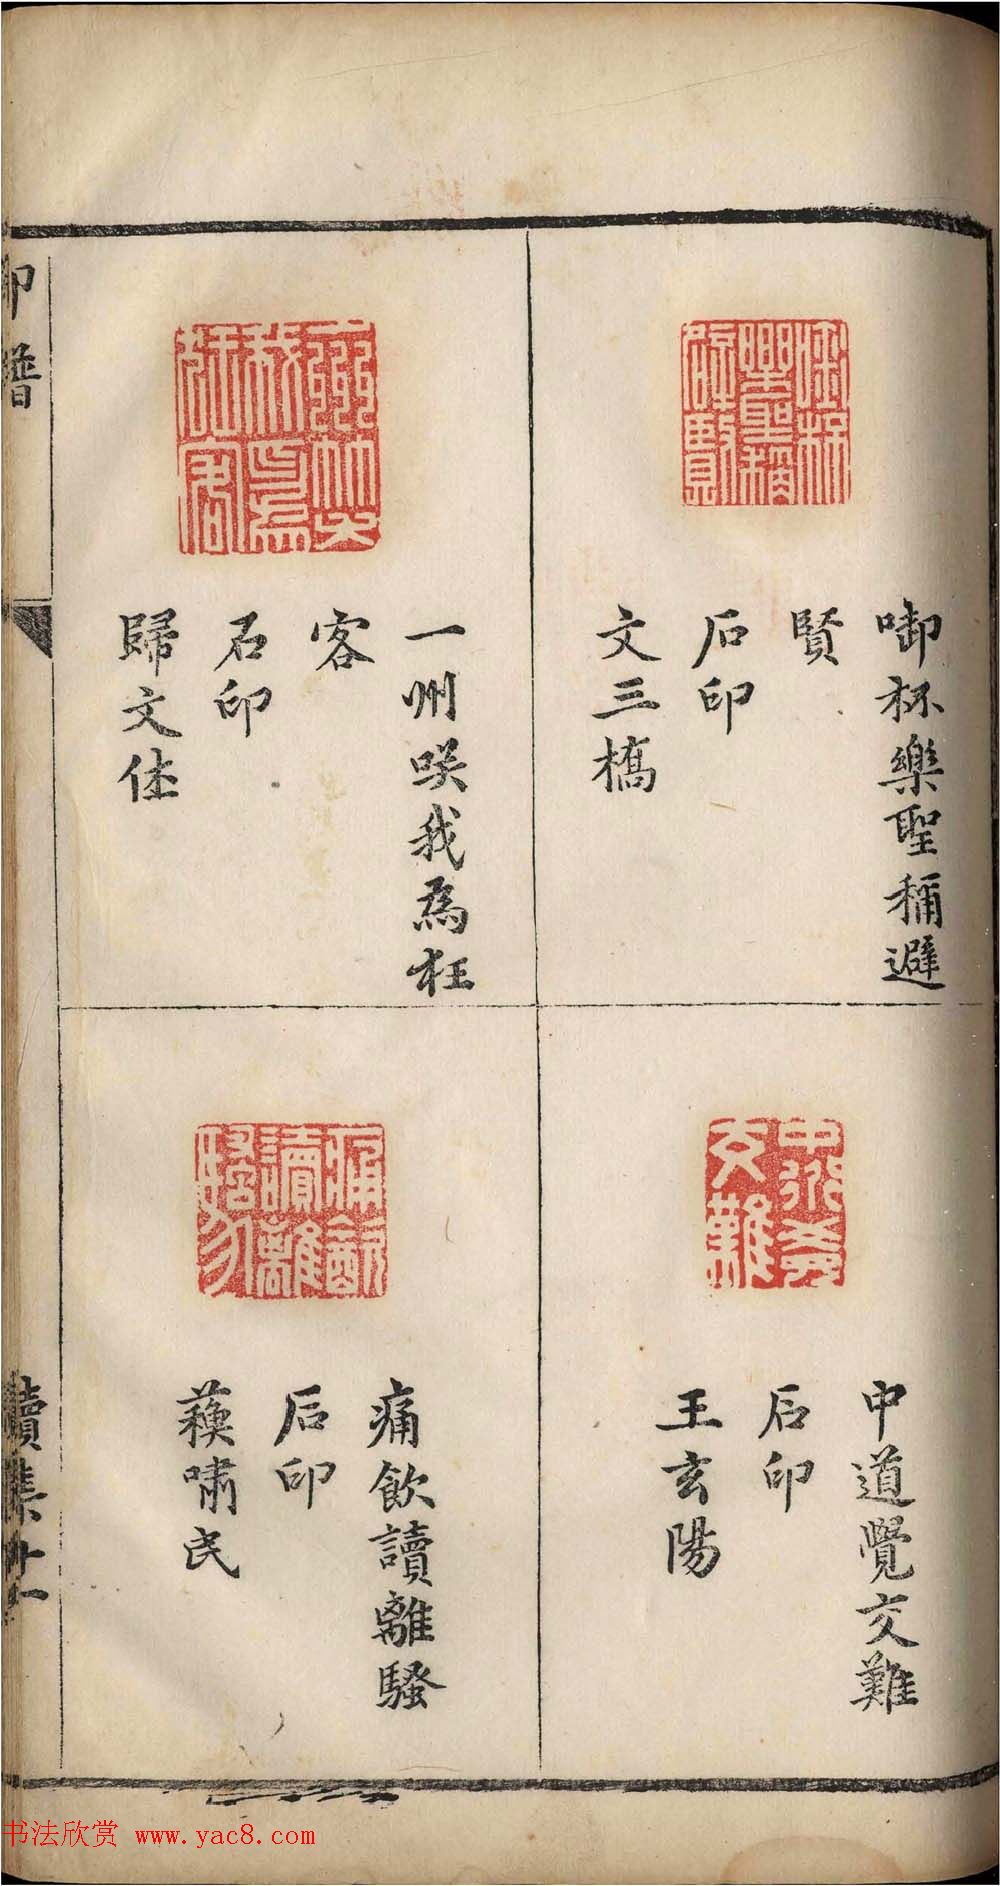 啣杯樂聖稱避
賢
石印
文三橋
一州咲我為狂
客
石印
歸文休
中道覺交難
石印
王玄陽
痛飲讀離騷
石印
蘓嘯民
印譜
續集廿一
书法欣赏 www.yac8.com